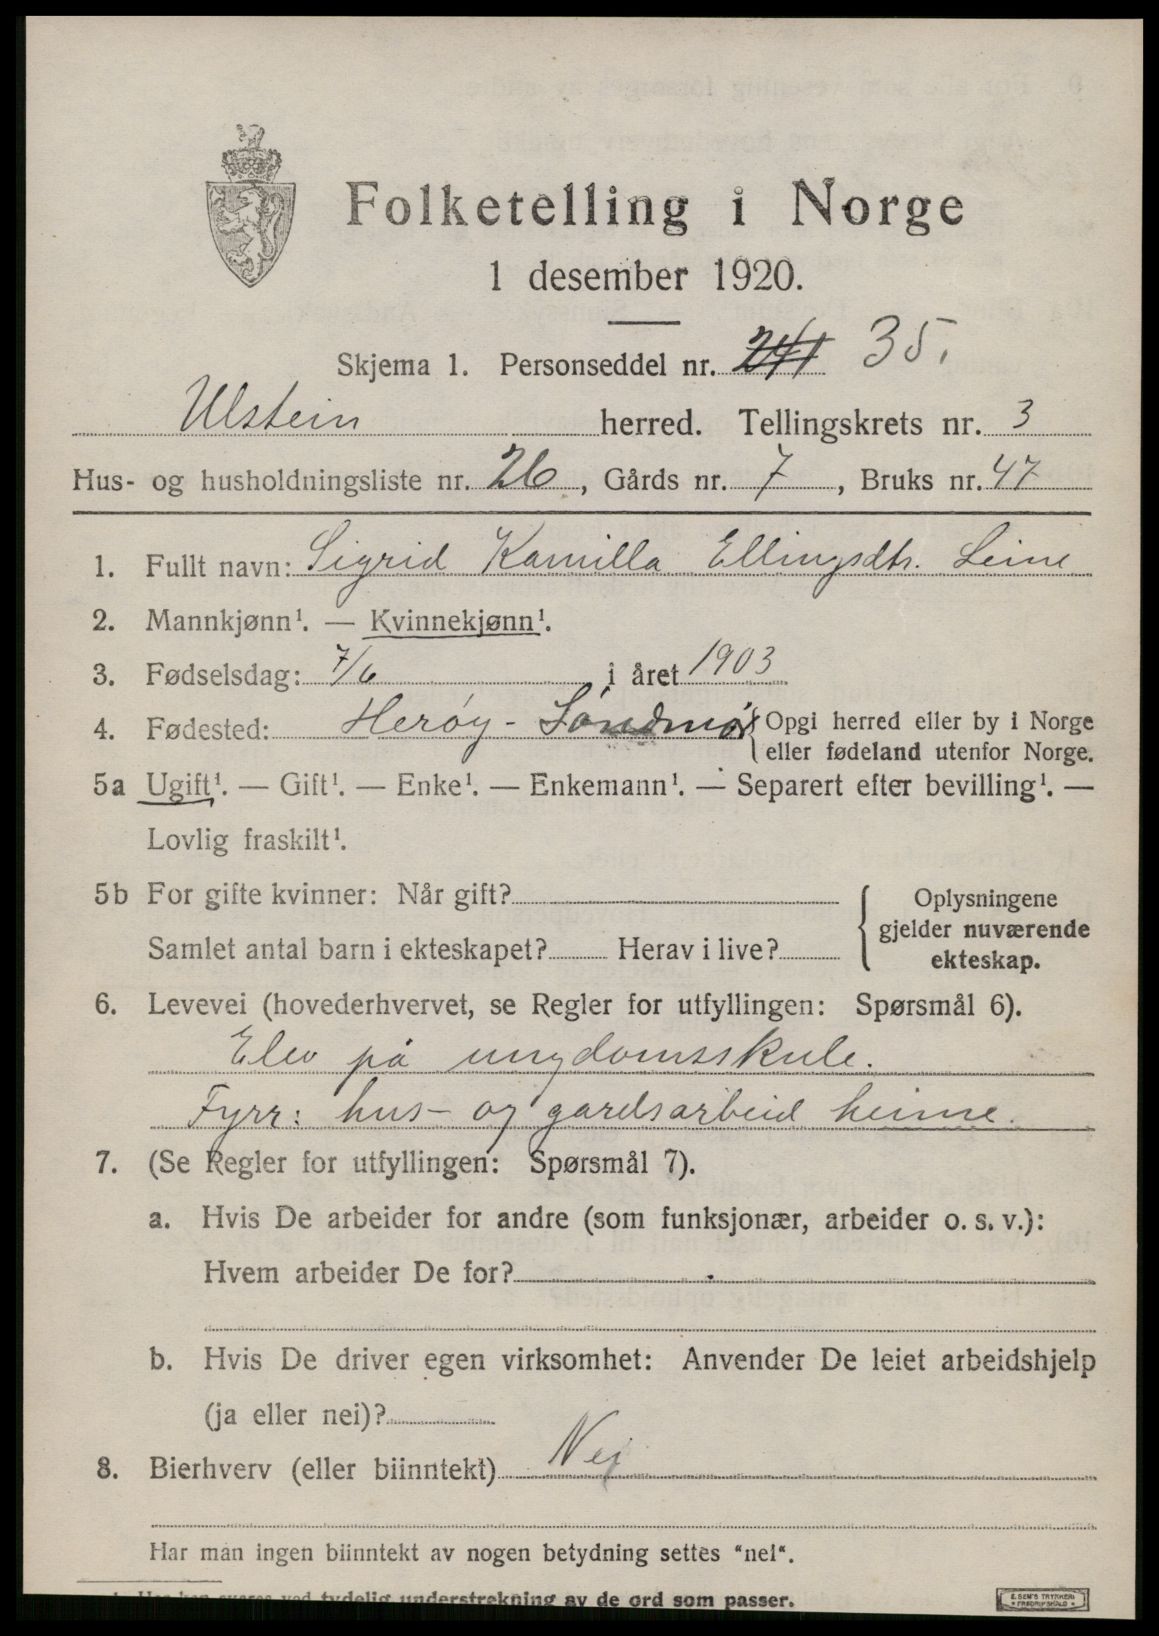 Folketelling i Norge
1 desember 1920.
Skjema 1. Personseddel nr. 241 35.
Ulstein herred. Tellingskrets nr. 3
Hus- og husholdningsliste nr. 26, Gårds nr. 7, Bruks nr. 47
1. Fullt navn: Sigrid Kamilla Ellingsdtr. Leine
2. Mannkjønn¹. — Kvinnekjønn¹.
3. Fødselsdag: 7/6 i året 1903
4. Fødested: Herøy - Söndmör { Opgi herred eller by i Norge
eller fødeland utenfor Norge.
5a Ugift¹. — Gift¹. — Enke¹. — Enkemann¹. — Separert efter bevilling¹. —
Lovlig fraskilt¹.
5b For gifte kvinner: Når gift?
Samlet antal barn i ekteskapet? Herav i live?
{ Oplysningene
gjelder nuværende
ekteskap.
6. Levevei (hovederhvervet, se Regler for utfyllingen: Spørsmål 6).
Elev på ungdomsskule.
Fyrr: hus- og gardsarbeid heime.
7. (Se Regler for utfyllingen: Spørsmål 7).
a. Hvis De arbeider for andre (som funksjonær, arbeider o. s. v.):
Hvem arbeider De for?
b. Hvis De driver egen virksomhet: Anvender De leiet arbeidshjelp
(ja eller nei)?
8. Bierhverv (eller biinntekt) Nej
Har man ingen biinntekt av nogen betydning settes "nei".
tydelig understrekning av de ord som passer.
E. SEM'S TRYKKERI
FREDRIKSHALD